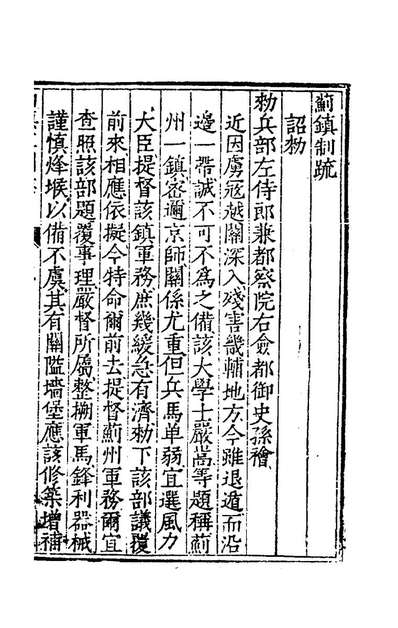 薊鎮制疏
詔勑
勑兵部左侍郎兼都察院右僉都御史孫禬
近因虜寇越關深入殘害畿輔地方今雖退遁而沿
邊一帶誠不可不為之備該大學士嚴嵩等題稱薊
州一鎮密邇京師關係尤重但兵馬单弱宜選風力
大臣提督該鎮軍務庶幾緩急有濟勑下該部議覆
前來相應依擬今特命爾前去提督薊州軍務爾宜
查照該部題覆事理嚴督所屬整搠軍馬鋒利器械
謹慎烽堠以備不虞其有關隘墻堡應該修築增補